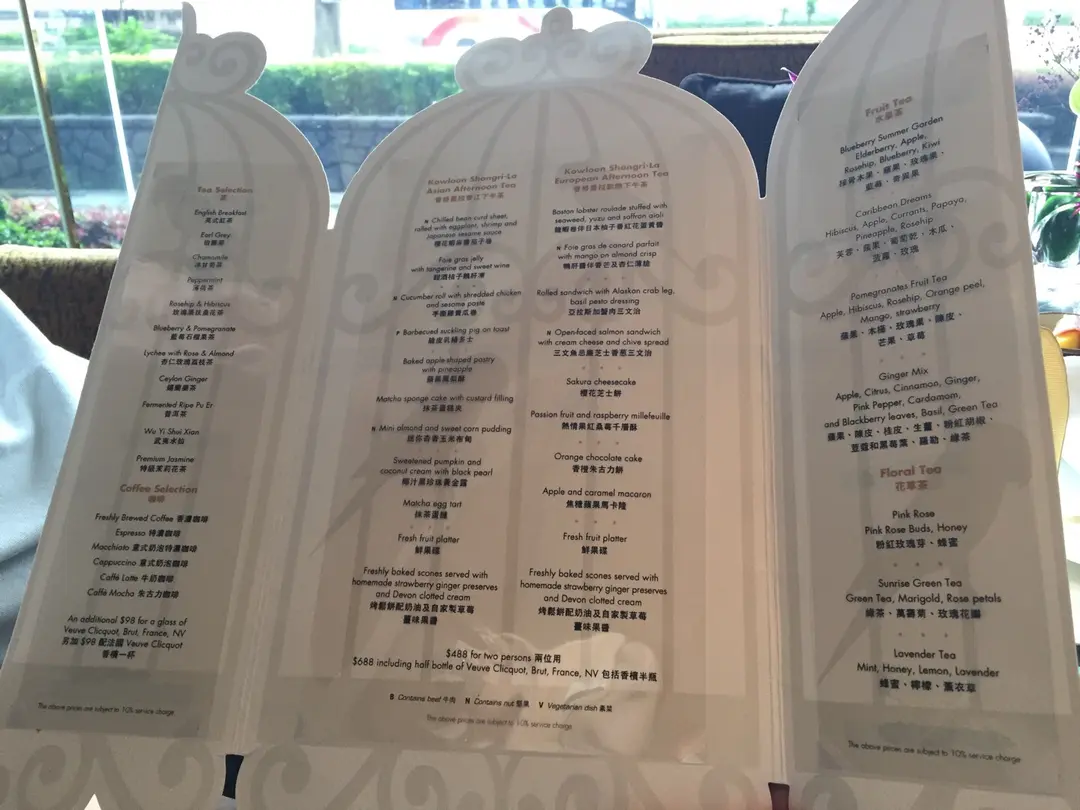 Tea Selection
茶
English Breakfast
英式紅茶
Earl Grey
伯爵茶
Chamomile
洋甘菊茶
Peppermint
薄荷茶
Rosehip & Hibiscus
玫瑰果扶桑花茶
Blueberry & Pomegranate
藍莓石榴果茶
Lychee with Rose & Almond
杏仁玫瑰荔枝茶
Ceylon Ginger
錫蘭薑茶
Fermented Ripe Pu Er
普洱茶
Wu Yi Shui Xian
武夷水仙
Premium Jasmine
特級茉莉花茶
Coffee Selection
咖啡
Freshly Brewed Coffee 香濃咖啡
Espresso 特濃咖啡
Macchiato 意式奶泡特濃咖啡
Cappuccino 意式奶泡咖啡
Caffé Latte 牛奶咖啡
Caffé Mocha 朱古力咖啡
An additional $98 for a glass of
Veuve Clicquot, Brut, France, NV
另加 $98 配法國 Veuve Clicquot
香檳一杯
The above prices are subject to 10% service charge
Kowloon Shangri-La
Asian Afternoon Tea
N Chilled bean curd sheet,
rolled with eggplant, shrimp and
Japanese sesame sauce
Foie gras jelly
with tangerine and sweet wine
N Cucumber roll with shredded chicken
and sesame paste
手撕雞青瓜卷
P Barbecued suckling pig on toast
脆皮乳豬多士
Baked apple-shaped pastry
with pineapple
Matcha sponge cake with custard filling
抹茶蛋糕夾
N Mini almond and sweet corn pudding
迷你杏香玉米布甸
Sweetened pumpkin and
coconut cream with black pearl
椰汁黑珍珠黃金露
Matcha egg tart
抹茶蛋撻
Fresh fruit platter
鮮果碟
Freshly baked scones served with
homemade strawberry ginger preserves
and Devon clotted cream
烤鬆餅配奶油及自家製草莓
薑味果醬
Kowloon Shangri-La
European Afternoon Tea
Boston lobster roulade stuffed with
seaweed, yuzu and saffron aioli
龍蝦卷伴日本柚子番紅花蛋黃醬
N Foie gras de canard parfait
with mango on almond crisp
鴨肝醬伴香芒及杏仁薄脆
Rolled sandwich with Alaskan crab leg,
basil pesto dressing
亞拉斯加蟹肉三文治
N Open-faced salmon sandwich
with cream cheese and chive spread
三文魚忌廉芝士香葱三文治
Sakura cheesecake
櫻花芝士餅
Passion fruit and raspberry millefeuille
熱情果紅桑莓千層酥
Orange chocolate cake
香橙朱古力餅
Apple and caramel macaron
焦糖蘋果馬卡龍
Fresh fruit platter
鮮果碟
Freshly baked scones served with
homemade strawberry ginger preserves
and Devon clotted cream
烤鬆餅配奶油及自家製草莓
薑味果醬
$488 for two persons 兩位用
$688 including half bottle of Veuve Clicquot, Brut, France, NV 包括香檳半瓶
B Contains beef 牛肉 N Contains nut 堅果 V Vegetarian dish 素菜
The above prices are subject to 10% service charge
Fruit Tea
水果茶
Blueberry Summer Garden
Elderberry, Apple,
Rosehip, Blueberry, Kiwi
接骨木果、蘋果、玫瑰果、
藍莓、奇異果
Caribbean Dreams
Hibiscus, Apple, Currants, Papaya,
Pineapple, Rosehip
芙蓉、蘋果、葡萄乾、木瓜、
菠蘿、玫瑰
Pomegranates Fruit Tea
Apple, Hibiscus, Rosehip, Orange peel,
Mango, strawberry
蘋果、木槿、玫瑰果、陳皮、
芒果、草莓
Ginger Mix
Apple, Citrus, Cinnamon, Ginger,
Pink Pepper, Cardamom,
and Blackberry leaves, Basil, Green Tea
蘋果、陳皮、桂皮、生薑、粉紅胡椒、
荳蔻和黑莓葉、羅勒、綠茶
Floral Tea
花草茶
Pink Rose
Pink Rose Buds, Honey
粉紅玫瑰芽、蜂蜜
Sunrise Green Tea
Green Tea, Marigold, Rose petals
綠茶、萬壽菊、玫瑰花瓣
Lavender Tea
Mint, Honey, Lemon, Lavender
蜂蜜、檸檬、薰衣草
The above prices are subject to 10% service charge